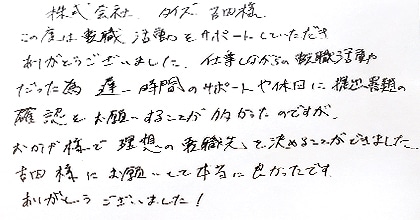 株式会社 タイズ 吉田様
この度は転職活動をサポートしていただき
ありがとうございました。仕事しながらの転職活動
だった為 遅い時間のサポートや休日に提出書類の
確認をお願いすることが多かったのですが、
おかげ様で理想の転職先を決めることができました。
吉田様にお願いして本当に良かったです
ありがとうございました!